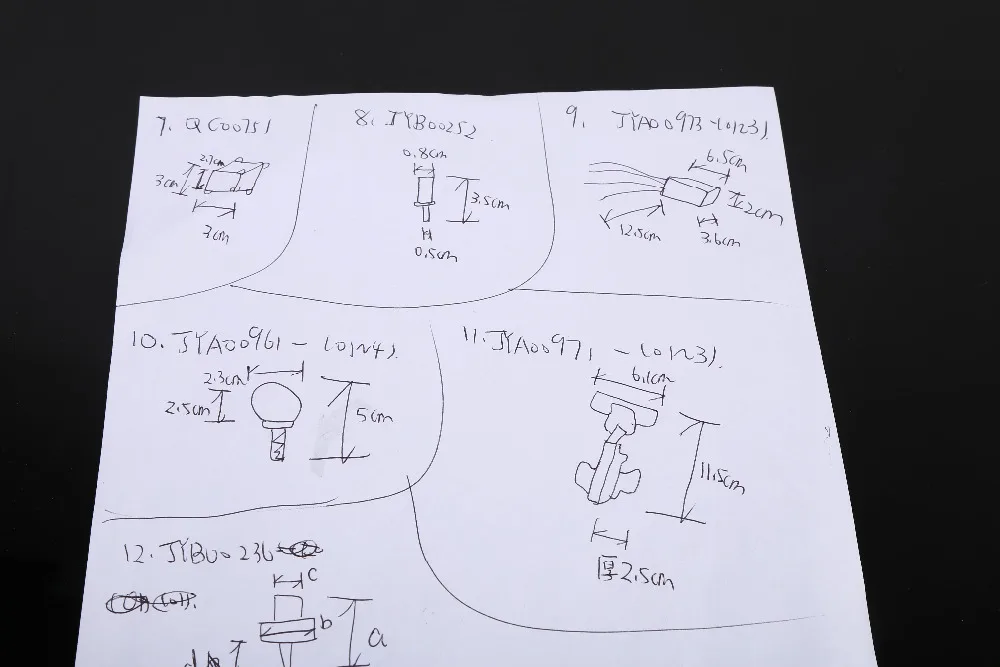 7. QC00751
2.7cm
3cm
7cm
8. JYB00252
0.8cm
3.5cm
0.5cm
9. JYA00973-(0123).
6.5cm
2cm
12.5cm
3.6cm
10. JYA00961 - (01~4).
2.3cm
2.5cm
5cm
11. JYA00971 - (01~3).
6.1cm
11.5cm
厚2.5cm
12. JYB00236
c
b
a
d